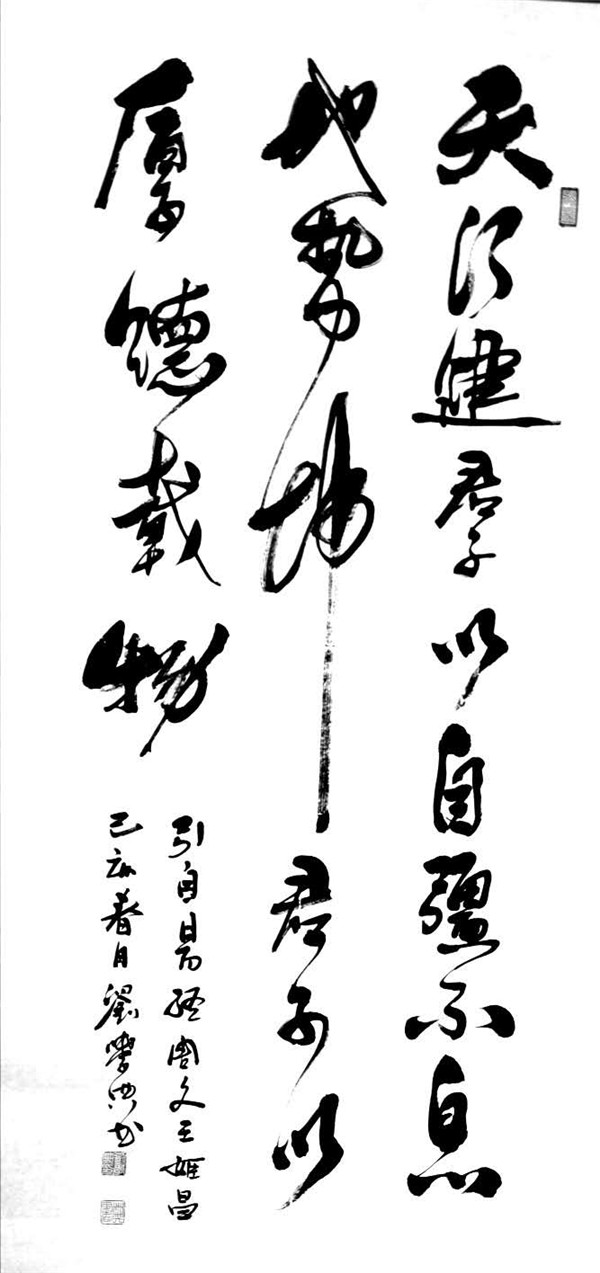 天行健君子以自彊不息
地势坤君子以
厚德载物
引自易经周文王姬昌
己亥春月刘学典书